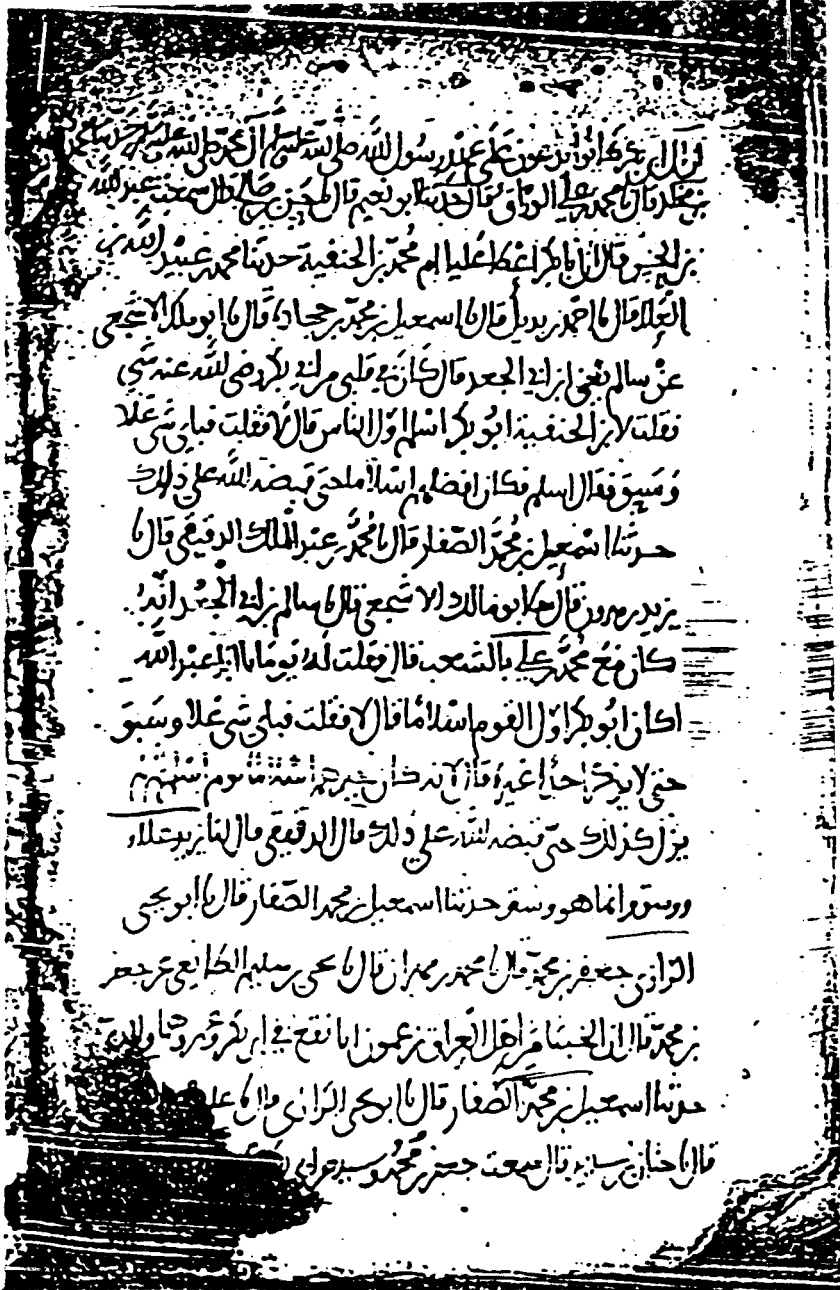 قال آل ابي بكر كانوا يدعون على عهد رسول الله صلى الله عليه وسلم آل محمد صلى الله عليه وسلم حدثنا محمد
بن مخلد قال نا محمد بن علي الوراق قال حدثنا ابو نعيم قال نا حسن بن صالح قال سمعت عبد الله
بن الحسن قال ان ابا بكر اعطا عليا ام محمد بن الحنفية حدثنا محمد بن عبيد الله بن
العلا قال نا احمد بن بديل قال نا اسمعيل بن محمد بن جحادة قال نا ابو ملك الاشجعي
عن سالم يعني ابن ابي الجعد قال كان في قلبي من ابي بكر رضي الله عنه شي
فقلت لابن الحنفية ابو بكر اسلم اول الناس قال لا فقلت فباي شي علا
وسبق فقال اسلم فكان افضلهم اسلاما حتى قبضه الله على ذلك
حدثنا اسمعيل بن محمد الصفار قال نا محمد بن عبد الملك الدقيقي قال نا
يزيد بن هرون قال نا ابو مالك الاشجعي قال نا سالم بن ابي الجعد انه
كان مع محمد بن علي بالشعب قال فقلت له يوما يا ابا عبد الله
اكان ابو بكر اول القوم اسلاما قال لا فقلت فباي شي علا وسبق
حتى لا يذكر احدا غيره قال لانه كان خيرهم اسلاما يوم اسلم لم
يزل كذلك حتى قبضه الله على ذلك قال الدقيقي قال لنا يزيد علاء
ووسق وانما هو وسبق حدثنا اسمعيل بن محمد الصفار قال نا ابو يحيى
الرازي جعفر بن محمد قال نا محمد بن مهران قال نا يحيى بن سليم الطايفي عن جعفر
بن محمد قال ان الخبثا من اهل العراق يزعمون انا نقع في ابي بكر وعمر وهما والداي
حدثنا اسمعيل بن محمد الصفار قال نا ابو يحيى الرازي قال نا علي
قال نا حنان بن سدير قال سمعت جعفر بن محمد وسئل عن ابي بكر